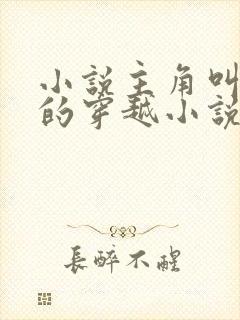 小說主角叫
的穿越小說
長醉不醒